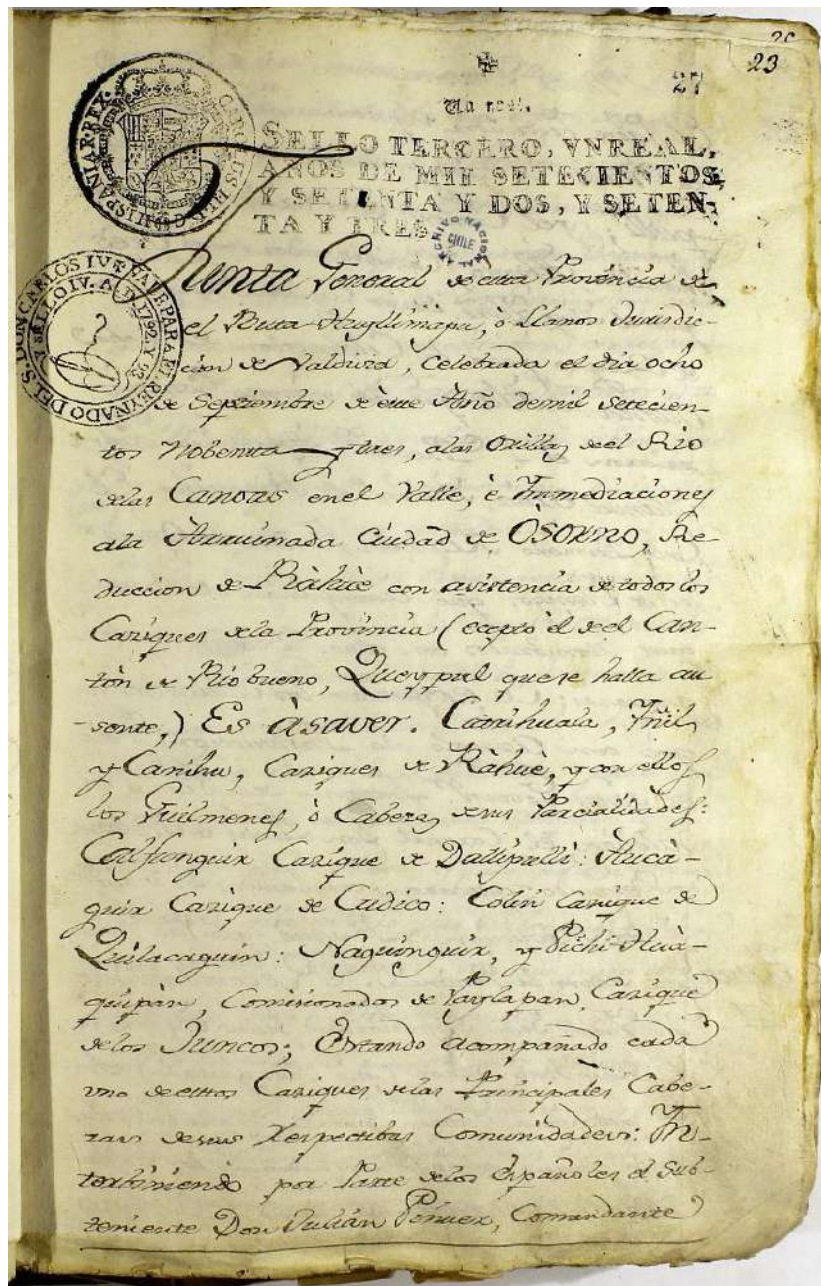 26
23
27
Un real.
SELLO TERCERO, VN REAL,
AÑOS DE MIL SETECIENTOS
Y SETENTA Y DOS, Y SETEN-
TA Y TRES.
HISPANIAR. REX. CAROLUS III D G
ARCHIVO NACIONAL CHILE
VALE PARA EL REYNADO DEL S. DON CARLOS IV
Y SELLO IV. A D 1792 Y 93
Junta General de esta Provincia de
el Buta Huyllimapu, ò Llanos Jurisdic-
cion de Valdivia, Celebrada el dia ocho
de Septiembre de este Año de mil setecien-
tos Nobenta y tres, alas Orillas de el Rio
delas Canoas en el Valle, è Inmediaciones
ala Arruinada Ciudad de Osorno, Re-
duccion de Ràhùe con asistencia de todos los
Caziques dela Provincia (ecepto el de el Can-
tòn de Rio bueno, Queypul que se halla au-
sente,) Es àsaver. Catrihuala, Iñil,
y Canihu, Caziques de Ràhuè, y con ellos
los Guilmenes, ò Cabezas de sus Parcialidades:
Calfunguir Cazique de Dallipulli: Aucà-
guir Cazique de Cudico: Colin Cazique de
Quilacaguin: Naguinguir, y Pichi-Huà-
quipàn, Comisionados de Paylapan, Cazique
delos Juncos; Estando acompañado cada
uno de estos Caziques delas Principales Cabe-
zas desus Respectibas Comunidades: In-
terbiniendo por Parte delos Españoles el Sub-
teniente Don Julian Pinuer, Comandante